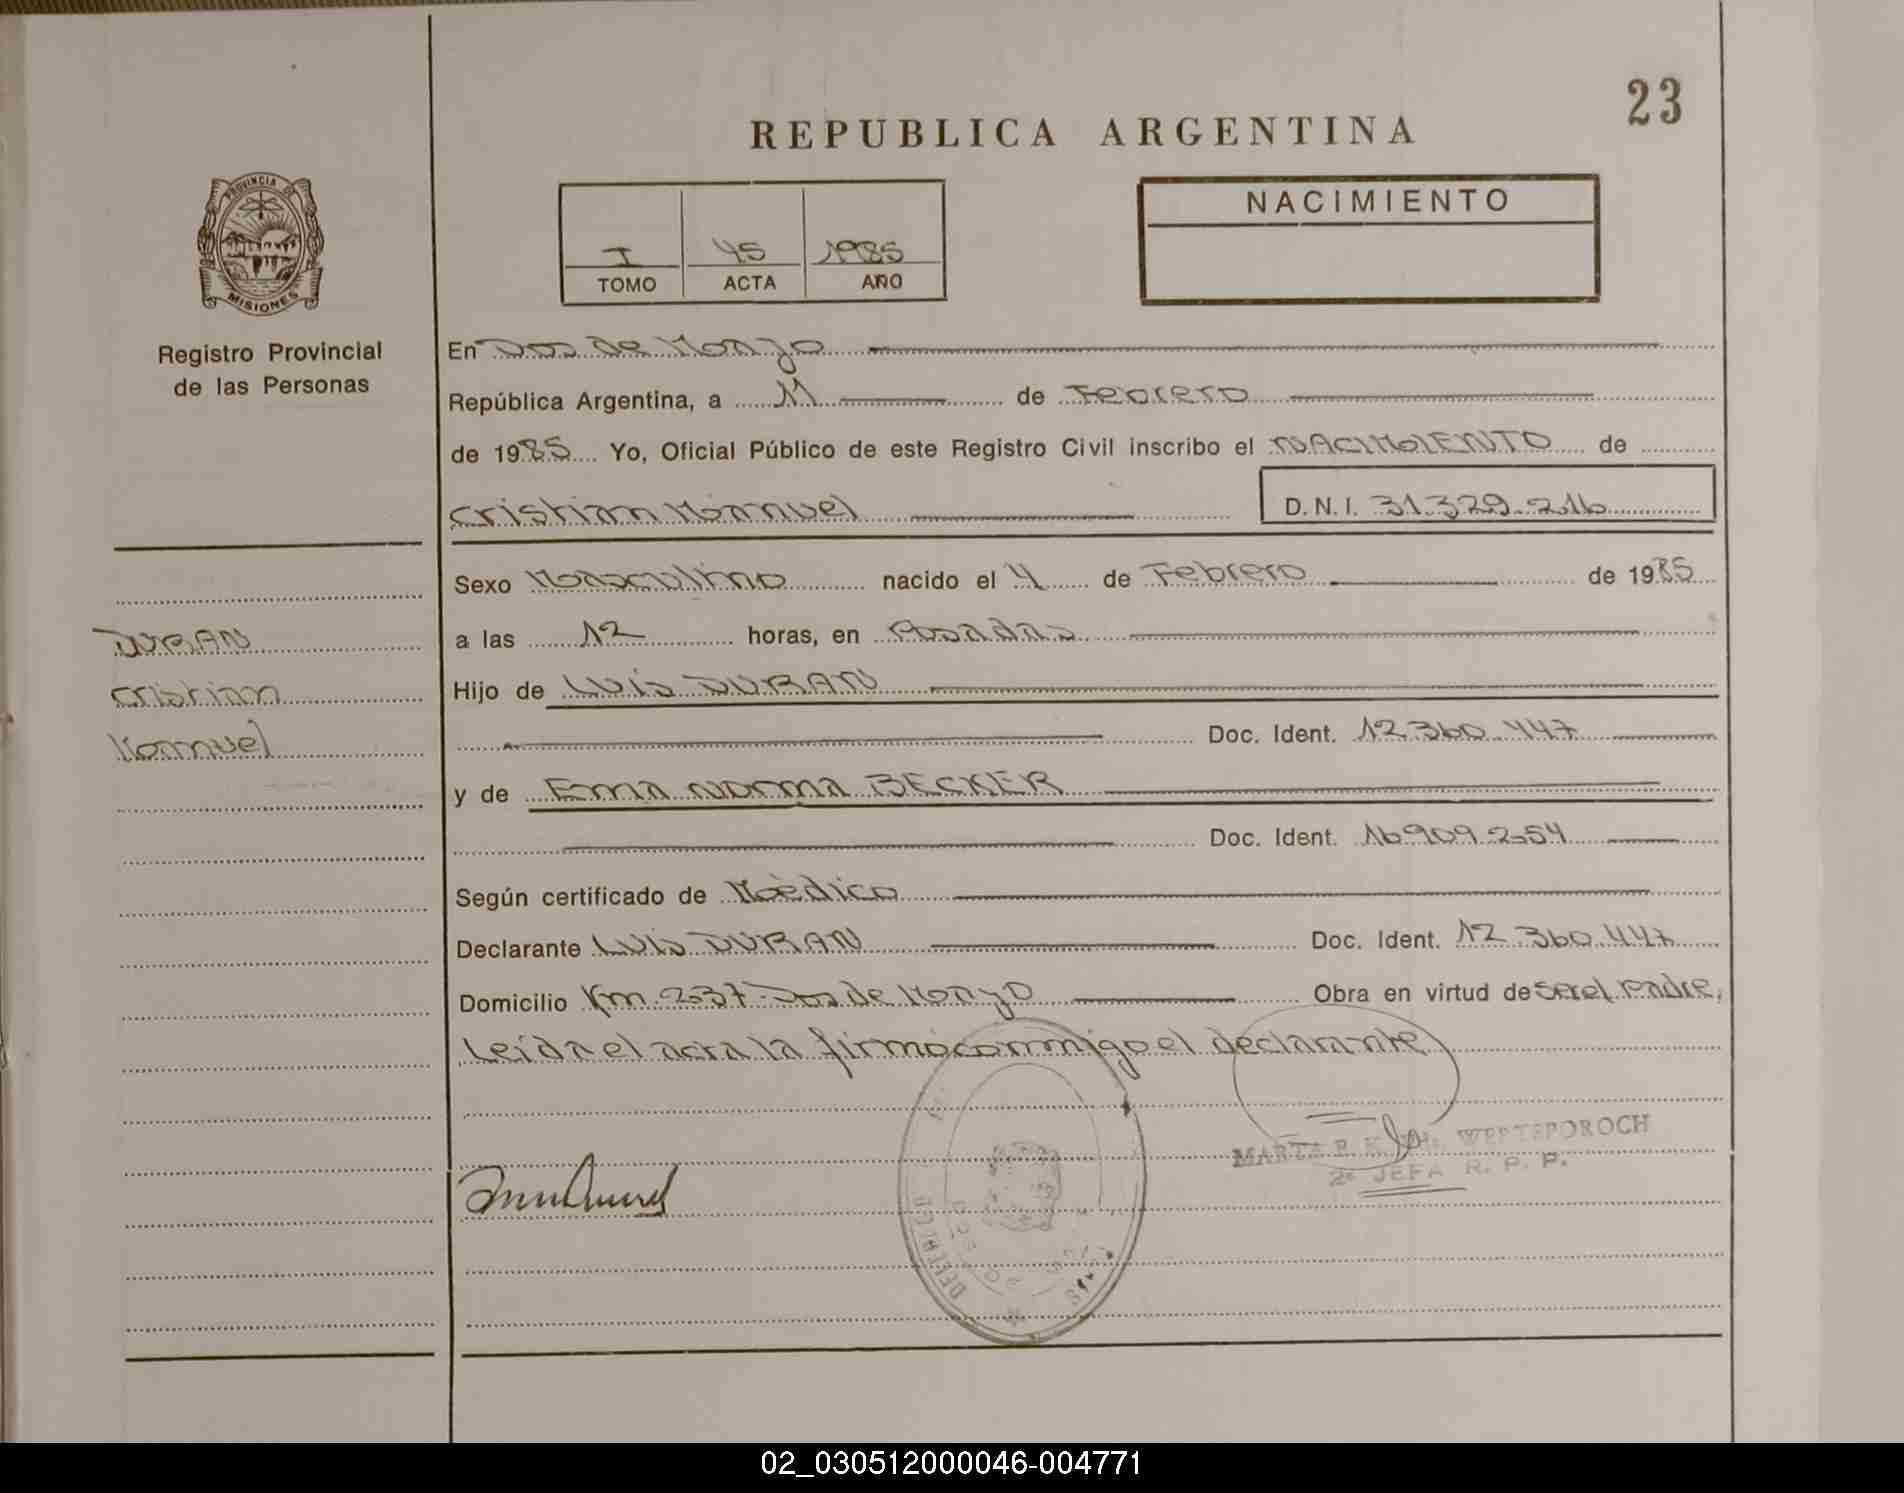 23
REPUBLICA ARGENTINA
PROVINCIA DE
MISIONES
Registro Provincial
de las Personas
I 45 1985
TOMO ACTA AÑO
NACIMIENTO
En Dos de Mayo
República Argentina, a 11 de Febrero
de 1985 Yo, Oficial Público de este Registro Civil inscribo el NACIMIENTO de
Cristian Manuel D.N.I. 31.329.216
Sexo Masculino nacido el 4 de Febrero de 1985
DURAN
Cristian
Manuel
a las 12 horas, en Posadas
Hijo de LUIS DURAN
Doc. Ident. 12.360.447
y de Ema Norma BECKER
Doc. Ident. 16.909.254
Según certificado de Médico
Declarante LUIS DURAN Doc. Ident. 12.360.447
Domicilio Km. 237-Dos de Mayo Obra en virtud de ser el padre,
Leida el acta la firmó conmigo el declarante
MARTA E. K.
2a JEFA R. P. P.
02_030512000046-004771